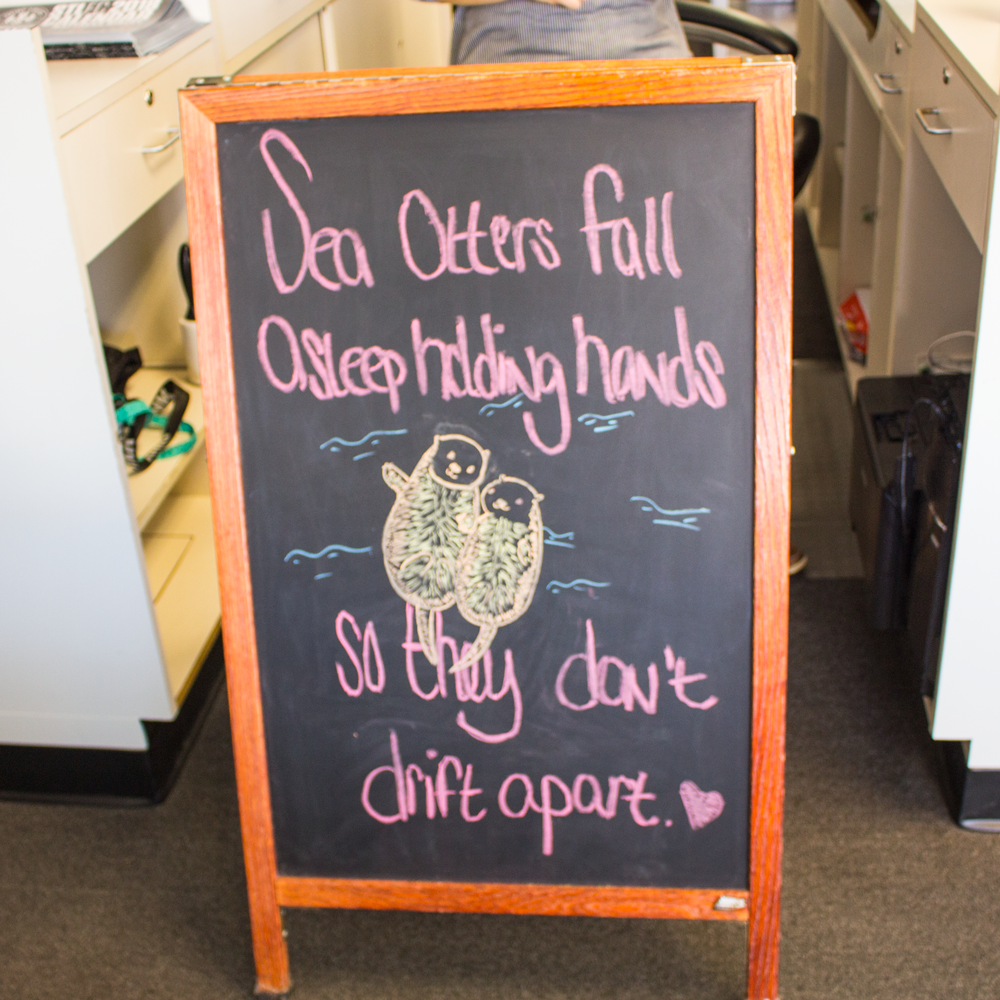 Sea Otters fall
Asleep holding hands
so they don't
drift apart.